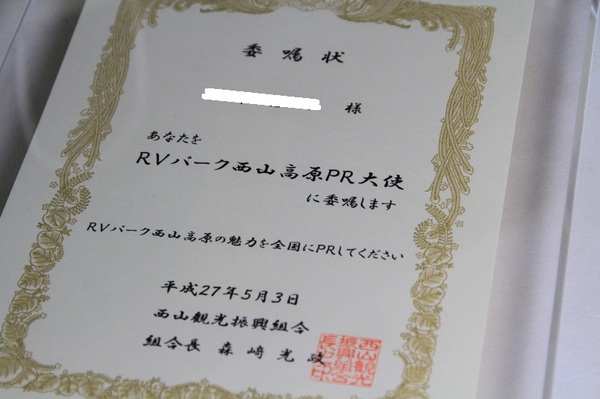 委嘱状
様
あなたを
RVパーク西山高原PR大使
に委嘱します
RVパーク西山高原の魅力を全国にPRしてください
平成27年5月3日
西山観光振興組合
組合長 森﨑光政